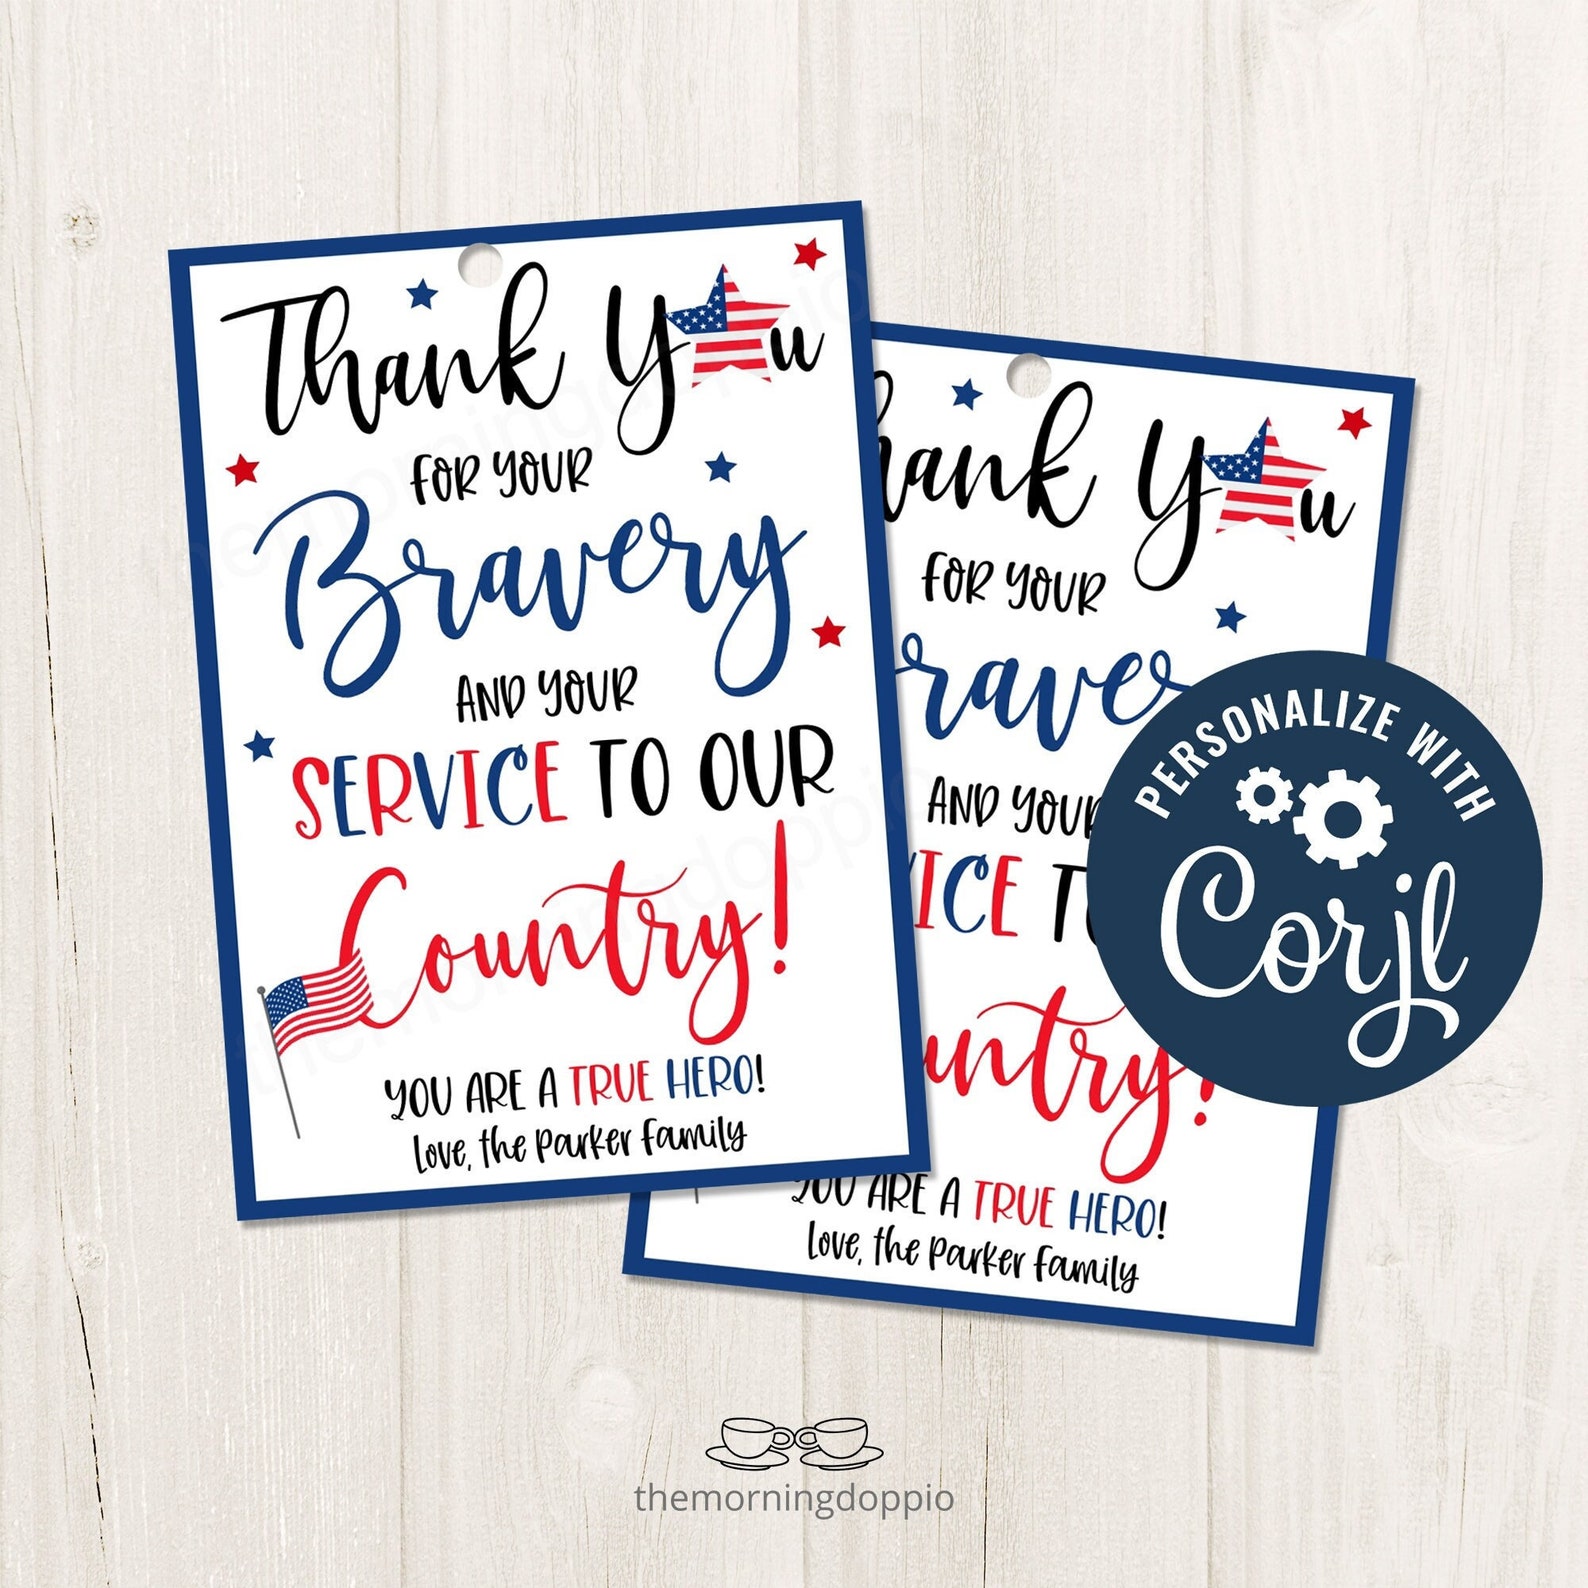 Thank You
FOR YOUR
Bravery
AND YOUR
SERVICE TO OUR
Country!
YOU ARE A TRUE HERO!
Love, the Parker Family
hank You
FOR YOUR
rave
AND YOU
VICE T
untry!
YOU ARE A TRUE HERO!
Love, the Parker Family
PERSONALIZE WITH
Corjl
themorningdoppio
themorningdoppio
themorningdoppio